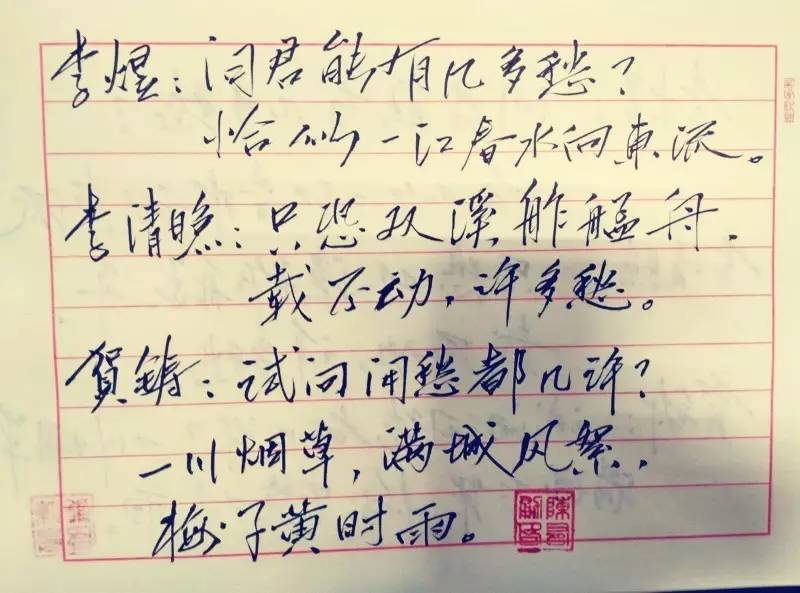 李煜：问君能有几多愁？
恰似一江春水向東流。
李清照：只恐双溪舴艋舟，
载不动，许多愁。
賀鋳：试问闲愁都几许？
一川烟草，满城风絮，
梅子黄时雨。